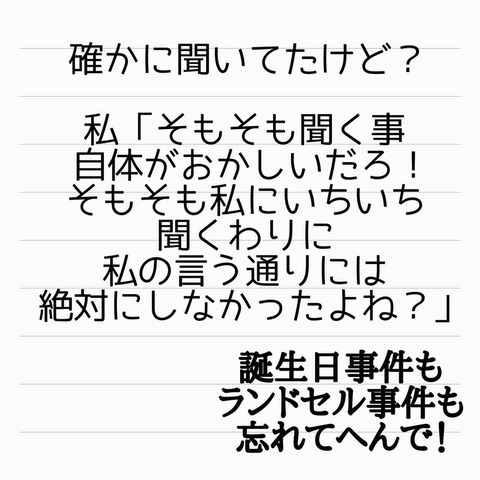 確かに聞いてたけど？
私「そもそも聞く事
自体がおかしいだろ！
そもそも私にいちいち
聞くわりに
私の言う通りには
絶対にしなかったよね？」
誕生日事件も
ランドセル事件も
忘れてへんで！